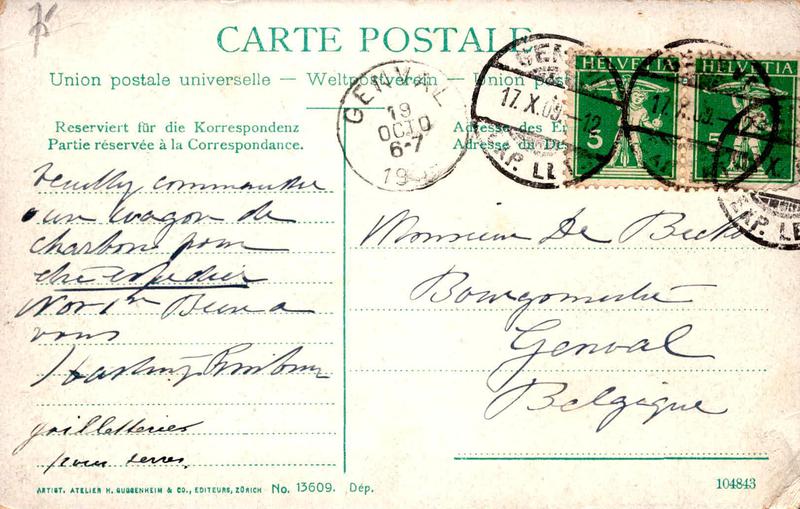 CARTE POSTALE
Union postale universelle — Weltpostverein — Union post
Reserviert für die Korrespondenz
Partie réservée à la Correspondance.
Adresse des
Adresse du Des
GENVAL
19
OCTO
6-7
19
GEN
17.X.09.-12
AP. LE
HELVETIA
5
17.X.09.-12
HELVETIA
5
X
AP. LE
commander
un wagon de
charbon pour
expedier
Bien a
vous
gailletteries
pour serres
Monsieur De
Bourgmestre
Genval
Belgique
ARTIST. ATELIER H. GUGGENHEIM & CO., EDITEURS, ZÜRICH No. 13609. Dép.
104843